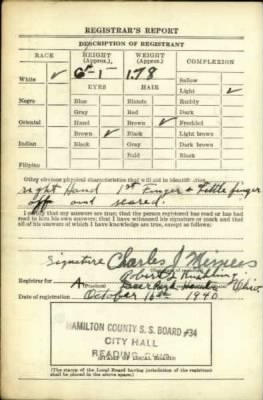 REGISTRAR'S REPORT
DESCRIPTION OF REGISTRANT
RACE
HEIGHT (Approx.)
WEIGHT (Approx.)
COMPLEXION
White ✓
6-1
178
Sallow
EYES
HAIR
Light ✓
Negro
Blue
Blonde
Ruddy
Gray
Red
Dark
Oriental
Hazel
Brown ✓
Freckled
Brown ✓
Black
Light brown
Indian
Black
Gray
Dark brown
Bald
Black
Filipino
Other obvious physical characteristics that will aid in identification
right Hand 1st Finger & little finger
off and scared.
I certify that my answers are true; that the person registered has read or has had
read to him his own answers; that I have witnessed his signature or mark and that
all of his answers of which I have knowledge are true, except as follows:
Signature Charles J.
Robert
Registrar for A Ohio
Date of registration October 16th 1940
HAMILTON COUNTY S. S. BOARD #34
CITY HALL
READING, OHIO
STAMP OF LOCAL BOARD
(The stamp of the Local Board having jurisdiction of the registrant shall be
placed in the above space.)